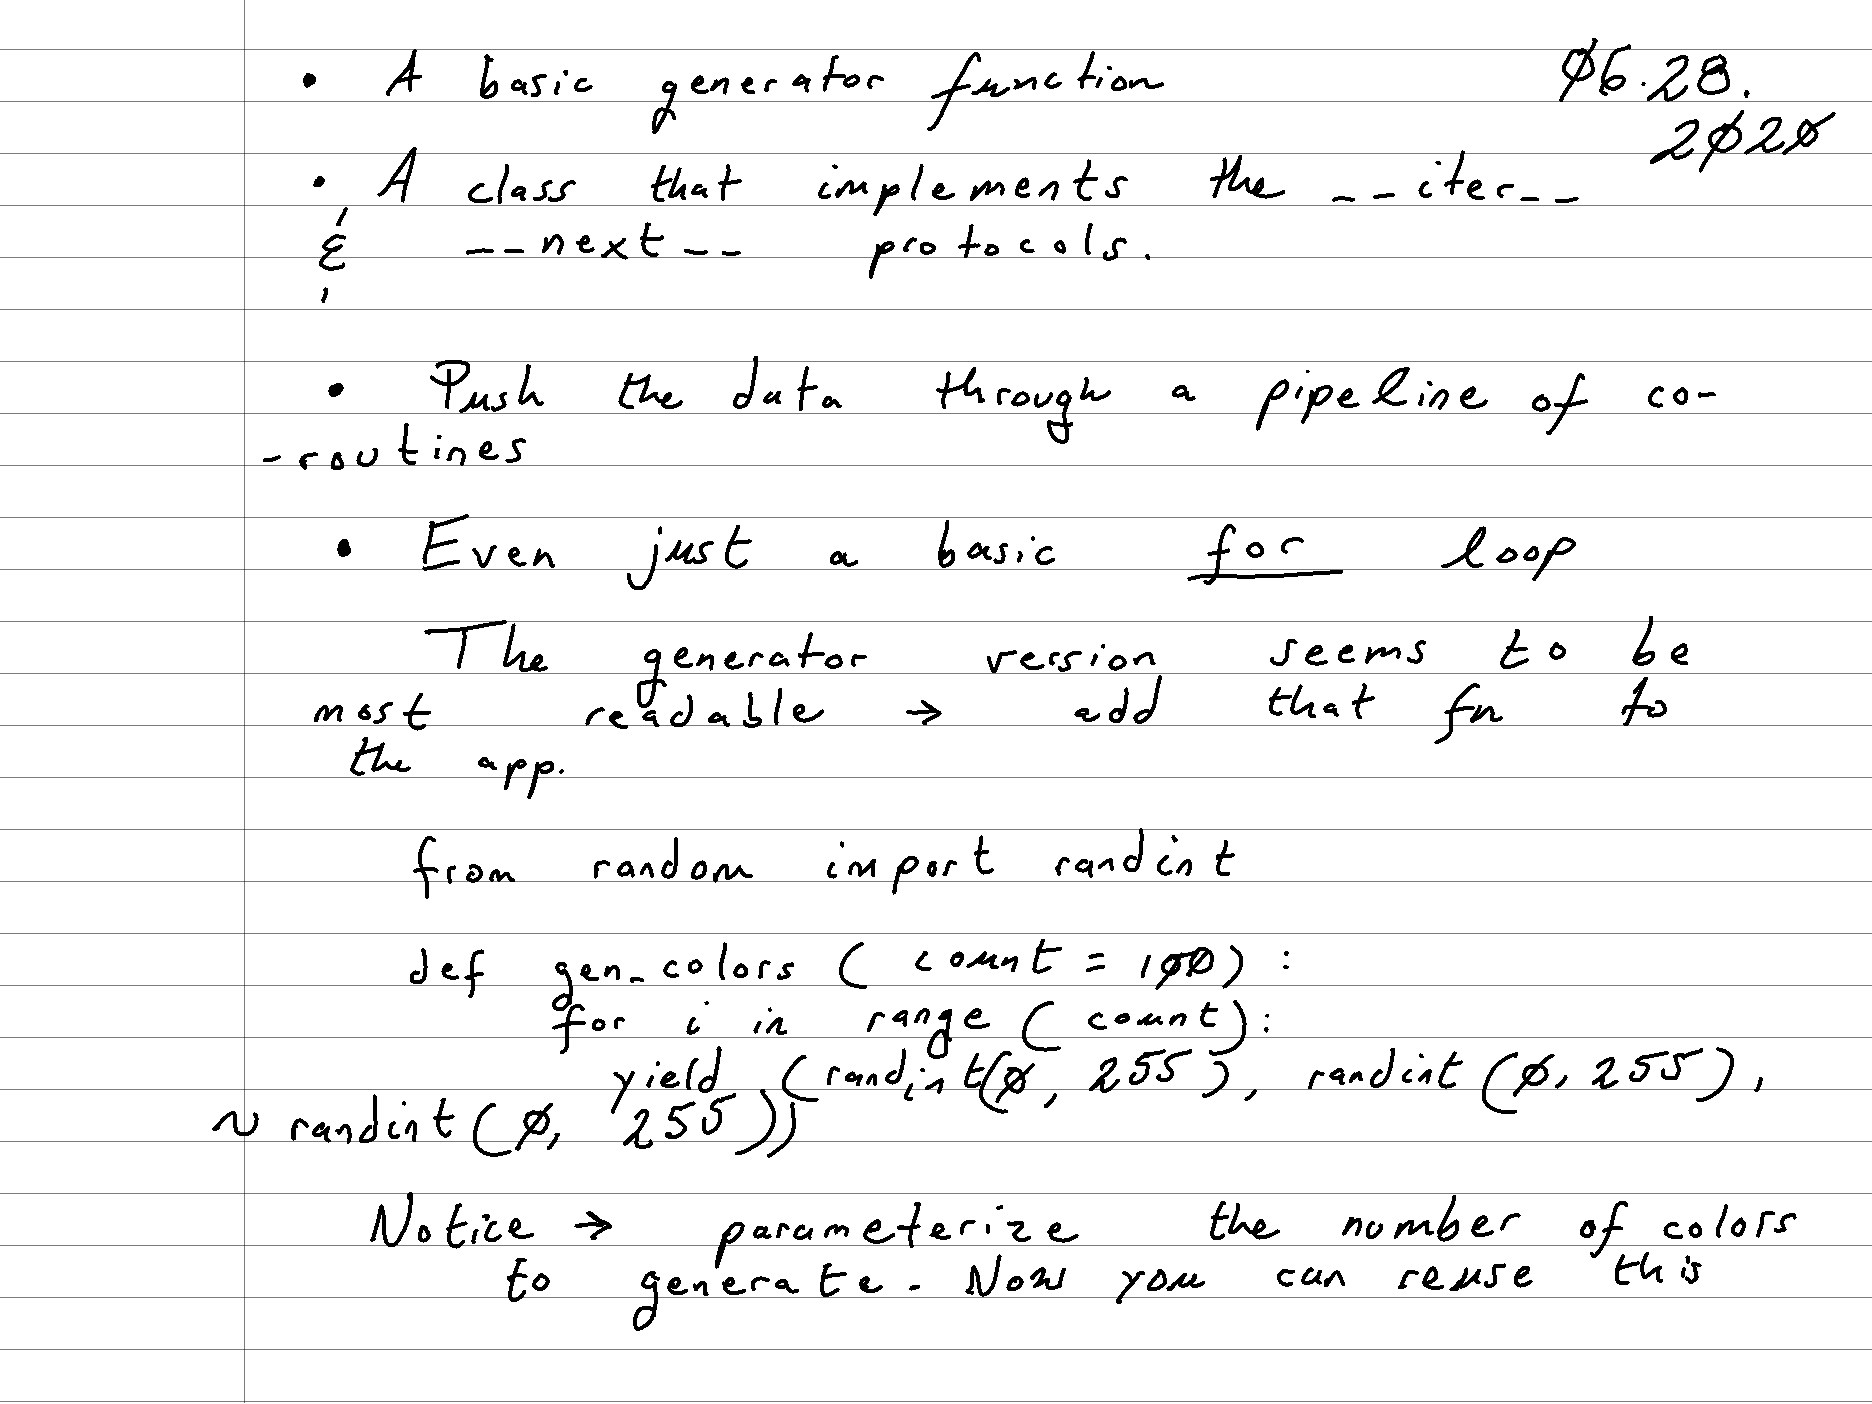 • A basic generator function
06.28.
2020
• A class that implements the __iter__
& __next__ protocols.
• Push the data through a pipeline of co-
-routines
• Even just a basic for loop
The generator version seems to be
most readable → add that fn to
the app.
from random import randint
def gen_colors (count = 100):
for i in range (count):
yield (randint(0, 255), randint (0, 255),
~ randint (0, 255))
Notice → parameterize the number of colors
to generate. Now you can reuse this